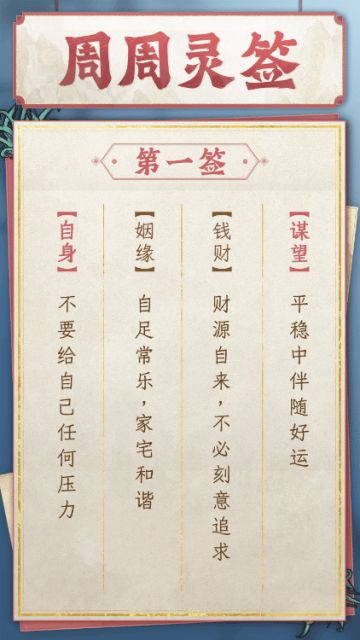 周周灵签
第一签
【谋望】
平稳中伴随好运
【钱财】
财源自来，不必刻意追求
【姻缘】
自足常乐，家宅和谐
【自身】
不要给自己任何压力